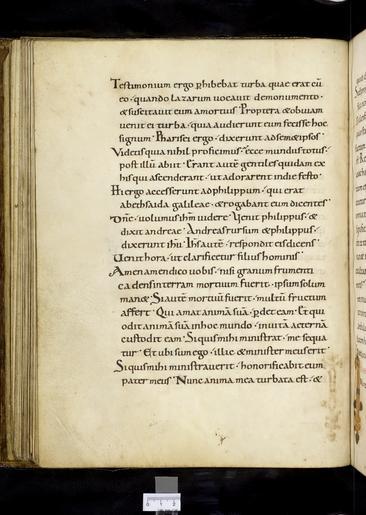 Testimonium ergo phibebat turba quae erat cū
eo · quando lazarum uocauit demonumento ·
& suscitauit eum amortuis Propterea & obuiam
uenit ei turba · quia audierunt eum fecisse hoc
signum · Pharisei ergo · dixerunt adsem&ipsos
Videtis quia nihil proficimus · ecce mundus totus ·
post illū abiit · Erant autē gentiles quidam ex
his qui ascenderant · ut adorarent indie festo ·
Hi ergo accesserunt adphilippum · qui erat
abethsaida galileae · & rogabant eum dicentes
Dn̄e · uolumus ihm uidere · Uenit philippus · &
dixit andreae · Andreas rursum & philippus ·
dixerunt ihū · Ihs autē · respondit eis dicens
Uenit hora · ut clarificetur filius hominis
Amen amen dico uobis · nisi granum frumenti
cadens interram mortuum fuerit · ipsum solum
man& · Si autē mortuū fuerit · multū fructum
affert · Qui amat animā suā · pd& eam · Et qui
odit animā suā inhoc mundo · inuitā aeternā
custodit eam · Siquis mihi ministrat · me sequa
tur · Et ubi sum ego · illic & minister meus erit
Siquis mihi ministrauerit · honorificabit eum
pater meus · Nunc anima mea turbata est · &